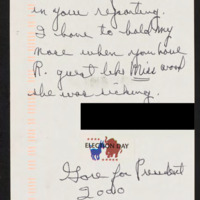 in your reporting.
I have to hold my
nose when you have
R. guest like Miss wood
she was icking.
ELECTION DAY
Gore for President
2000